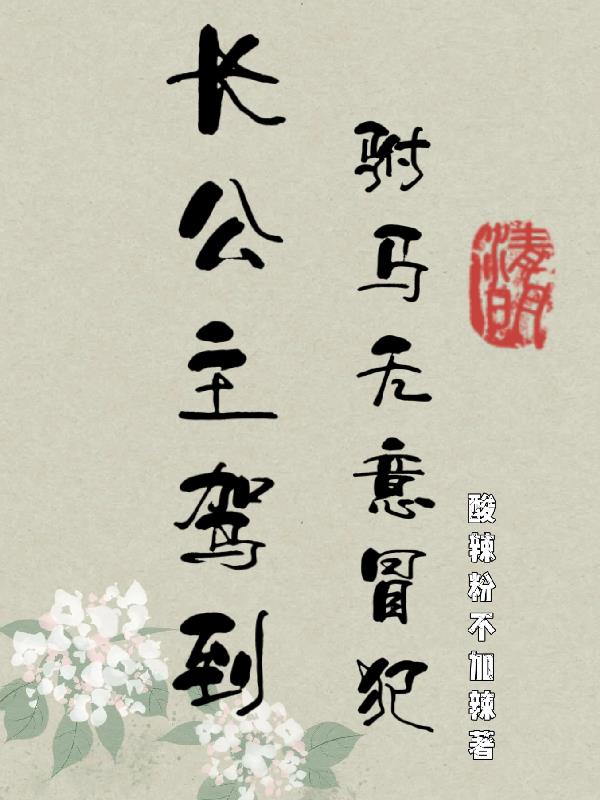 长公主驾到
驸马无意冒犯
清明
酸辣粉不加辣著